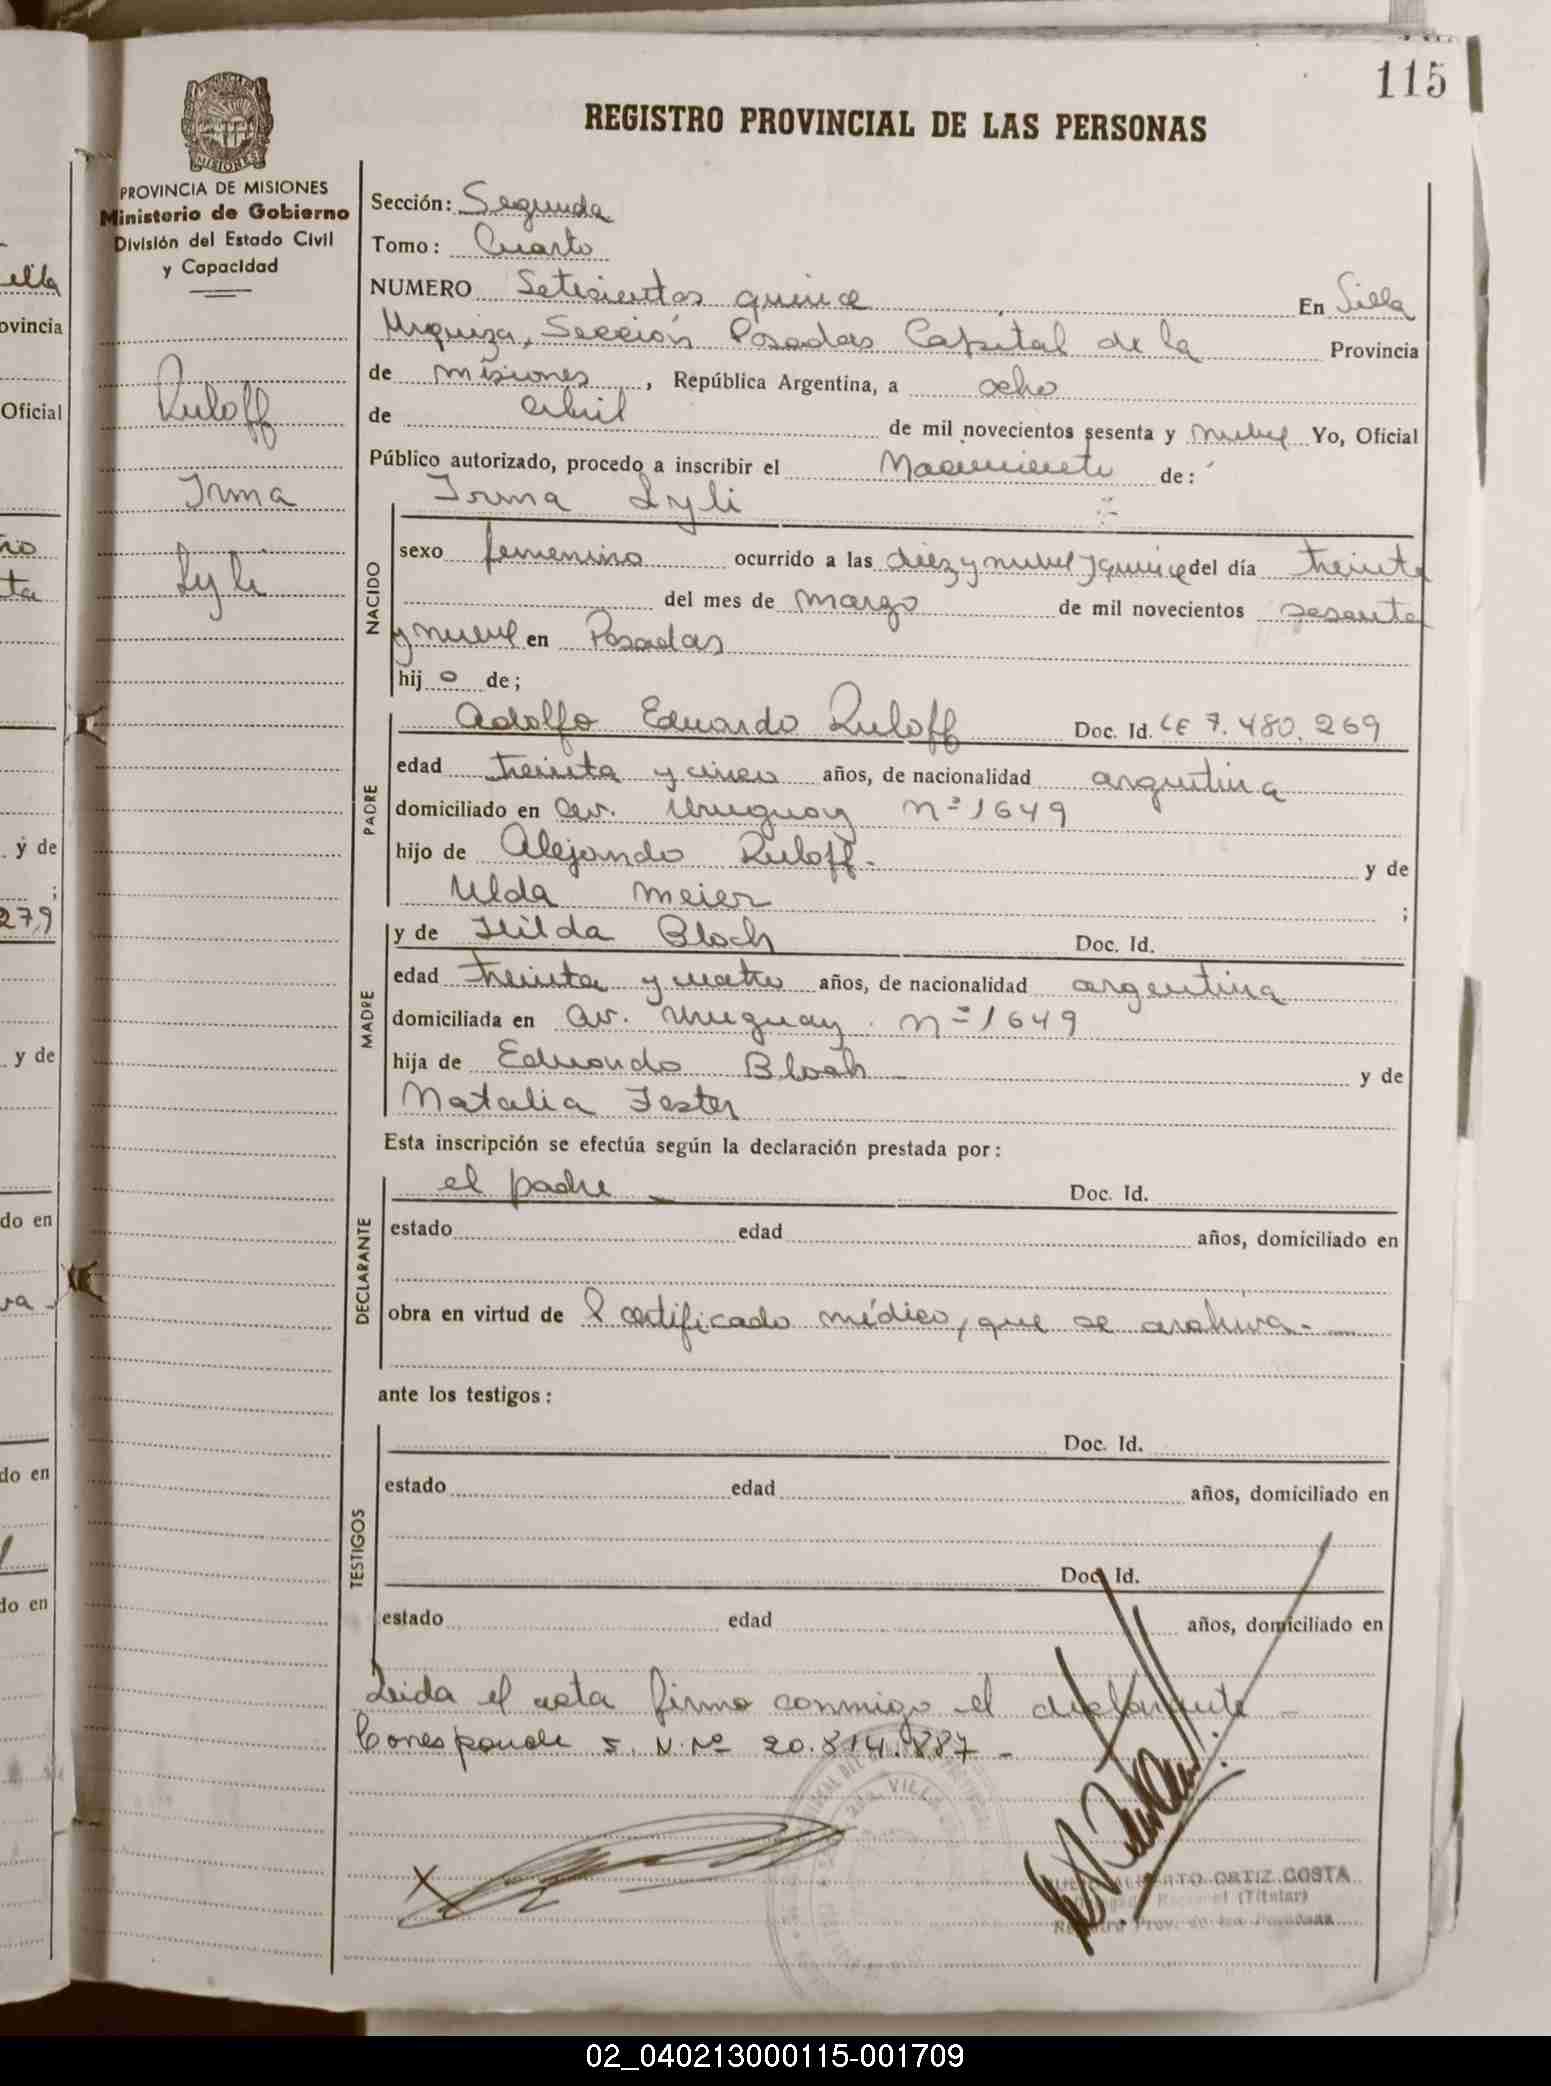 115
REGISTRO PROVINCIAL DE LAS PERSONAS
MISIONES
PROVINCIA DE MISIONES
Ministerio de Gobierno
División del Estado Civil
y Capacidad
Ruloff
Irma
Lyli
Sección: Segunda
Tomo: Cuarto
NUMERO Setecientos quince En Villa
Urquiza, Sección Posadas Capital de la Provincia
de misiones, República Argentina, a ocho
de abril de mil novecientos sesenta y nueve Yo, Oficial
Público autorizado, procedo a inscribir el Nacimiento de:
Irma Lyli
NACIDO
sexo femenino ocurrido a las diez y nueve y quince del día treinta
del mes de marzo de mil novecientos sesenta
y nueve en Posadas
hij o de;
PADRE
Adolfo Eduardo Ruloff Doc. Id. LE 7.480.269
edad treinta y cinco años, de nacionalidad argentina
domiciliado en Av. Uruguay nº 1649
hijo de Alejandro Ruloff. y de
Ulda meier ;
MADRE
y de Hilda Bloch Doc. Id.
edad treinta y cuatro años, de nacionalidad argentina
domiciliada en Av. Uruguay. nº 1649
hija de Eduardo Bloch y de
Natalia Fester
Esta inscripción se efectúa según la declaración prestada por:
DECLARANTE
el padre Doc. Id.
estado edad años, domiciliado en
obra en virtud de l certificado médico, que se archiva.
ante los testigos:
TESTIGOS
Doc. Id.
estado edad años, domiciliado en
Doc. Id.
estado edad años, domiciliado en
Leida el acta firma conmigo el declarante
Corresponde I. N. Nº 20.814.887 -
X
ORTIZ COSTA
(Titular)
y de
279
y de
do en
do en
do en
ovincia
Oficial
02_040213000115-001709